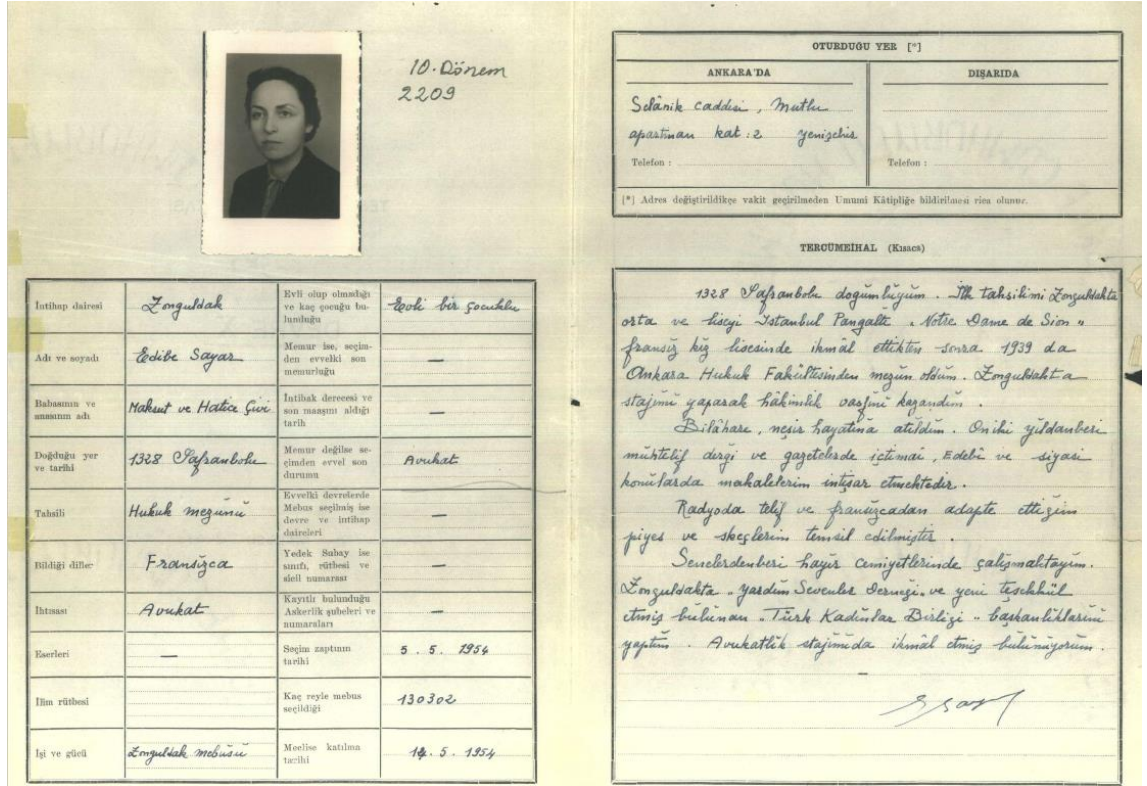 10. Dönem
2209
İntihap dairesi
Zonguldak
Evli olup olmadığı
ve kaç çocuğu bu-
lunduğu
Evli bir çocuklu
Adı ve soyadı
Edibe Sayar
Memur ise, seçim-
den evvelki son
memurluğu
—
Babasının ve
anasının adı
Maksut ve Hatice Çivi
İntibak derecesi ve
son maaşını aldığı
tarih
—
Doğduğu yer
ve tarihi
1328 Safranbolu
Memur değilse se-
çimden evvel son
durumu
Avukat
Tahsili
Hukuk mezunu
Evvelki devrelerde
Mebus seçilmiş ise
devre ve intihap
daireleri
—
Bildiği diller
Fransızca
Yedek Subay ise
sınıfı, rütbesi ve
sicil numarası
—
İhtısası
Avukat
Kayıtlı bulunduğu
Askerlik şubeleri ve
numaraları
—
Eserleri
—
Seçim zaptının
tarihi
5 . 5 . 1954
İlim rütbesi
Kaç reyle mebus
seçildiği
130302
İşi ve gücü
Zonguldak mebusu
Meclise katılma
tarihi
14 . 5 . 1954
OTURDUĞU YER [*]
ANKARA'DA
DIŞARIDA
Selânik caddesi, Mutlu
apartman kat : 2 Yenişehir
Telefon :
Telefon :
[*] Adres değiştirildikçe vakit geçirilmeden Umumi Kâtipliğe bildirilmesi rica olunur.
TERCÜMEİHAL (Kısaca)
1328 Safranbolu doğumluyum. İlk tahsilimi Zonguldakta
orta ve liseyi Istanbul Pangaltı „ Notre Dame de Sion „
fransız kız lisesinde ikmâl ettikten sonra 1939 da
Ankara Hukuk Fakültesinden mezun oldum. Zonguldakta
stajımı yaparak hâkimlik vasfını kazandım.
Bilâhare, neşir hayatına atıldım. Oniki yıldanberi
muhtelif dergi ve gazetelerde içtimai, Edebi ve siyasi
konularda makalelerim intişar etmektedir.
Radyoda telif ve fransızcadan adapte ettiğim
piyes ve skeçlerim temsil edilmiştir.
Senelerdenberi hayır cemiyetlerinde çalışmaktayım.
Zonguldakta yardım Sevenler Derneği ve yeni teşekkül
etmiş bulunan „ Türk Kadınlar Birliği „ başkanlıklarını
yaptım. Avukatlık stajımıda ikmâl etmiş bulunuyorum.
—